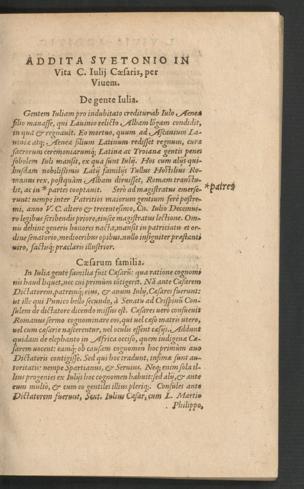 ADDITA SVETONIO IN
Vita C. Iulij Cæsaris, per
Viuem.
De gente Iulia.
Gentem Iuliam pro indubitato creditur ab Iulo, Aeneæ
filio manasse, qui Lauinio relicto Albam longam condidit,
in qua & regnauit. Eo mortuo, quum ad Ascanium La-
uinia atq; Aeneæ filium Latinum redisset regnum, cura
sacrorum ceremoniarumq; Latinæ ac Troianæ gentis penes
sobolem Iuli mansit, ex qua sunt Iulij. Hos cum alijs qui-
busdam nobilissimis Latij familijs Tullus Hostilius Ro-
manus rex, postquàm Albam diruisset, Romam transtu-
lit, ac in* partes cooptauit. Serò ad magistratus emerse-
*patres
runt: nempe inter Patritios maiorum gentium ferè postre-
mi, anno V. C. altero & trecentesimo, Cn. Iulio Decemui-
ro legibus scribendis priore, eiusce magistratus lectione. Om-
nis debinc generis honores nacta, mansit in patritiatu et or-
dine senatorio, mediocribus opibus, nullo insigniter præstanti
uiro, factúq; præclaro illustrior.
Cæsarum familia.
In Iulia gente familia fuit Cæsarũ: qua ratione cognomi-
nis haud liquet, nec cui primùm obtigerit. Nã ante Cæsarem
Dictatorem, patremq́; eius, & auum Iulij, Cæsares fuerunt:
ut ille qui Punico bello secundo, à Senatu ad Crispinũ Con-
sulem de dictatore dicendo missus est. Cæsares uerò consueuit
Romanus sermo cognominare eos, qui uel cæso matris utero,
uel cum cæsarie nascerentur, uel oculis essent cæsijs. Addunt
quidam de elephanto in Africa occiso, quem indigenæ Cæ-
sarem uocent: eamq́; ob causam cognomen hoc primùm auo
Dictatoris contigisse. Sed qui hoc tradunt, infimæ sunt au-
toritatis: nempe Spartianus, & Seruius. Neq; enim sola il-
lius progenies ex Iulijs hoc cognomen habuit: sed alij, & ante
eum multò, & cum eo gentiles illius pleriq;. Consules ante
Dictatorem fuerunt, Sext. Iulius Cæsar, cum L. Martio
Philippo,